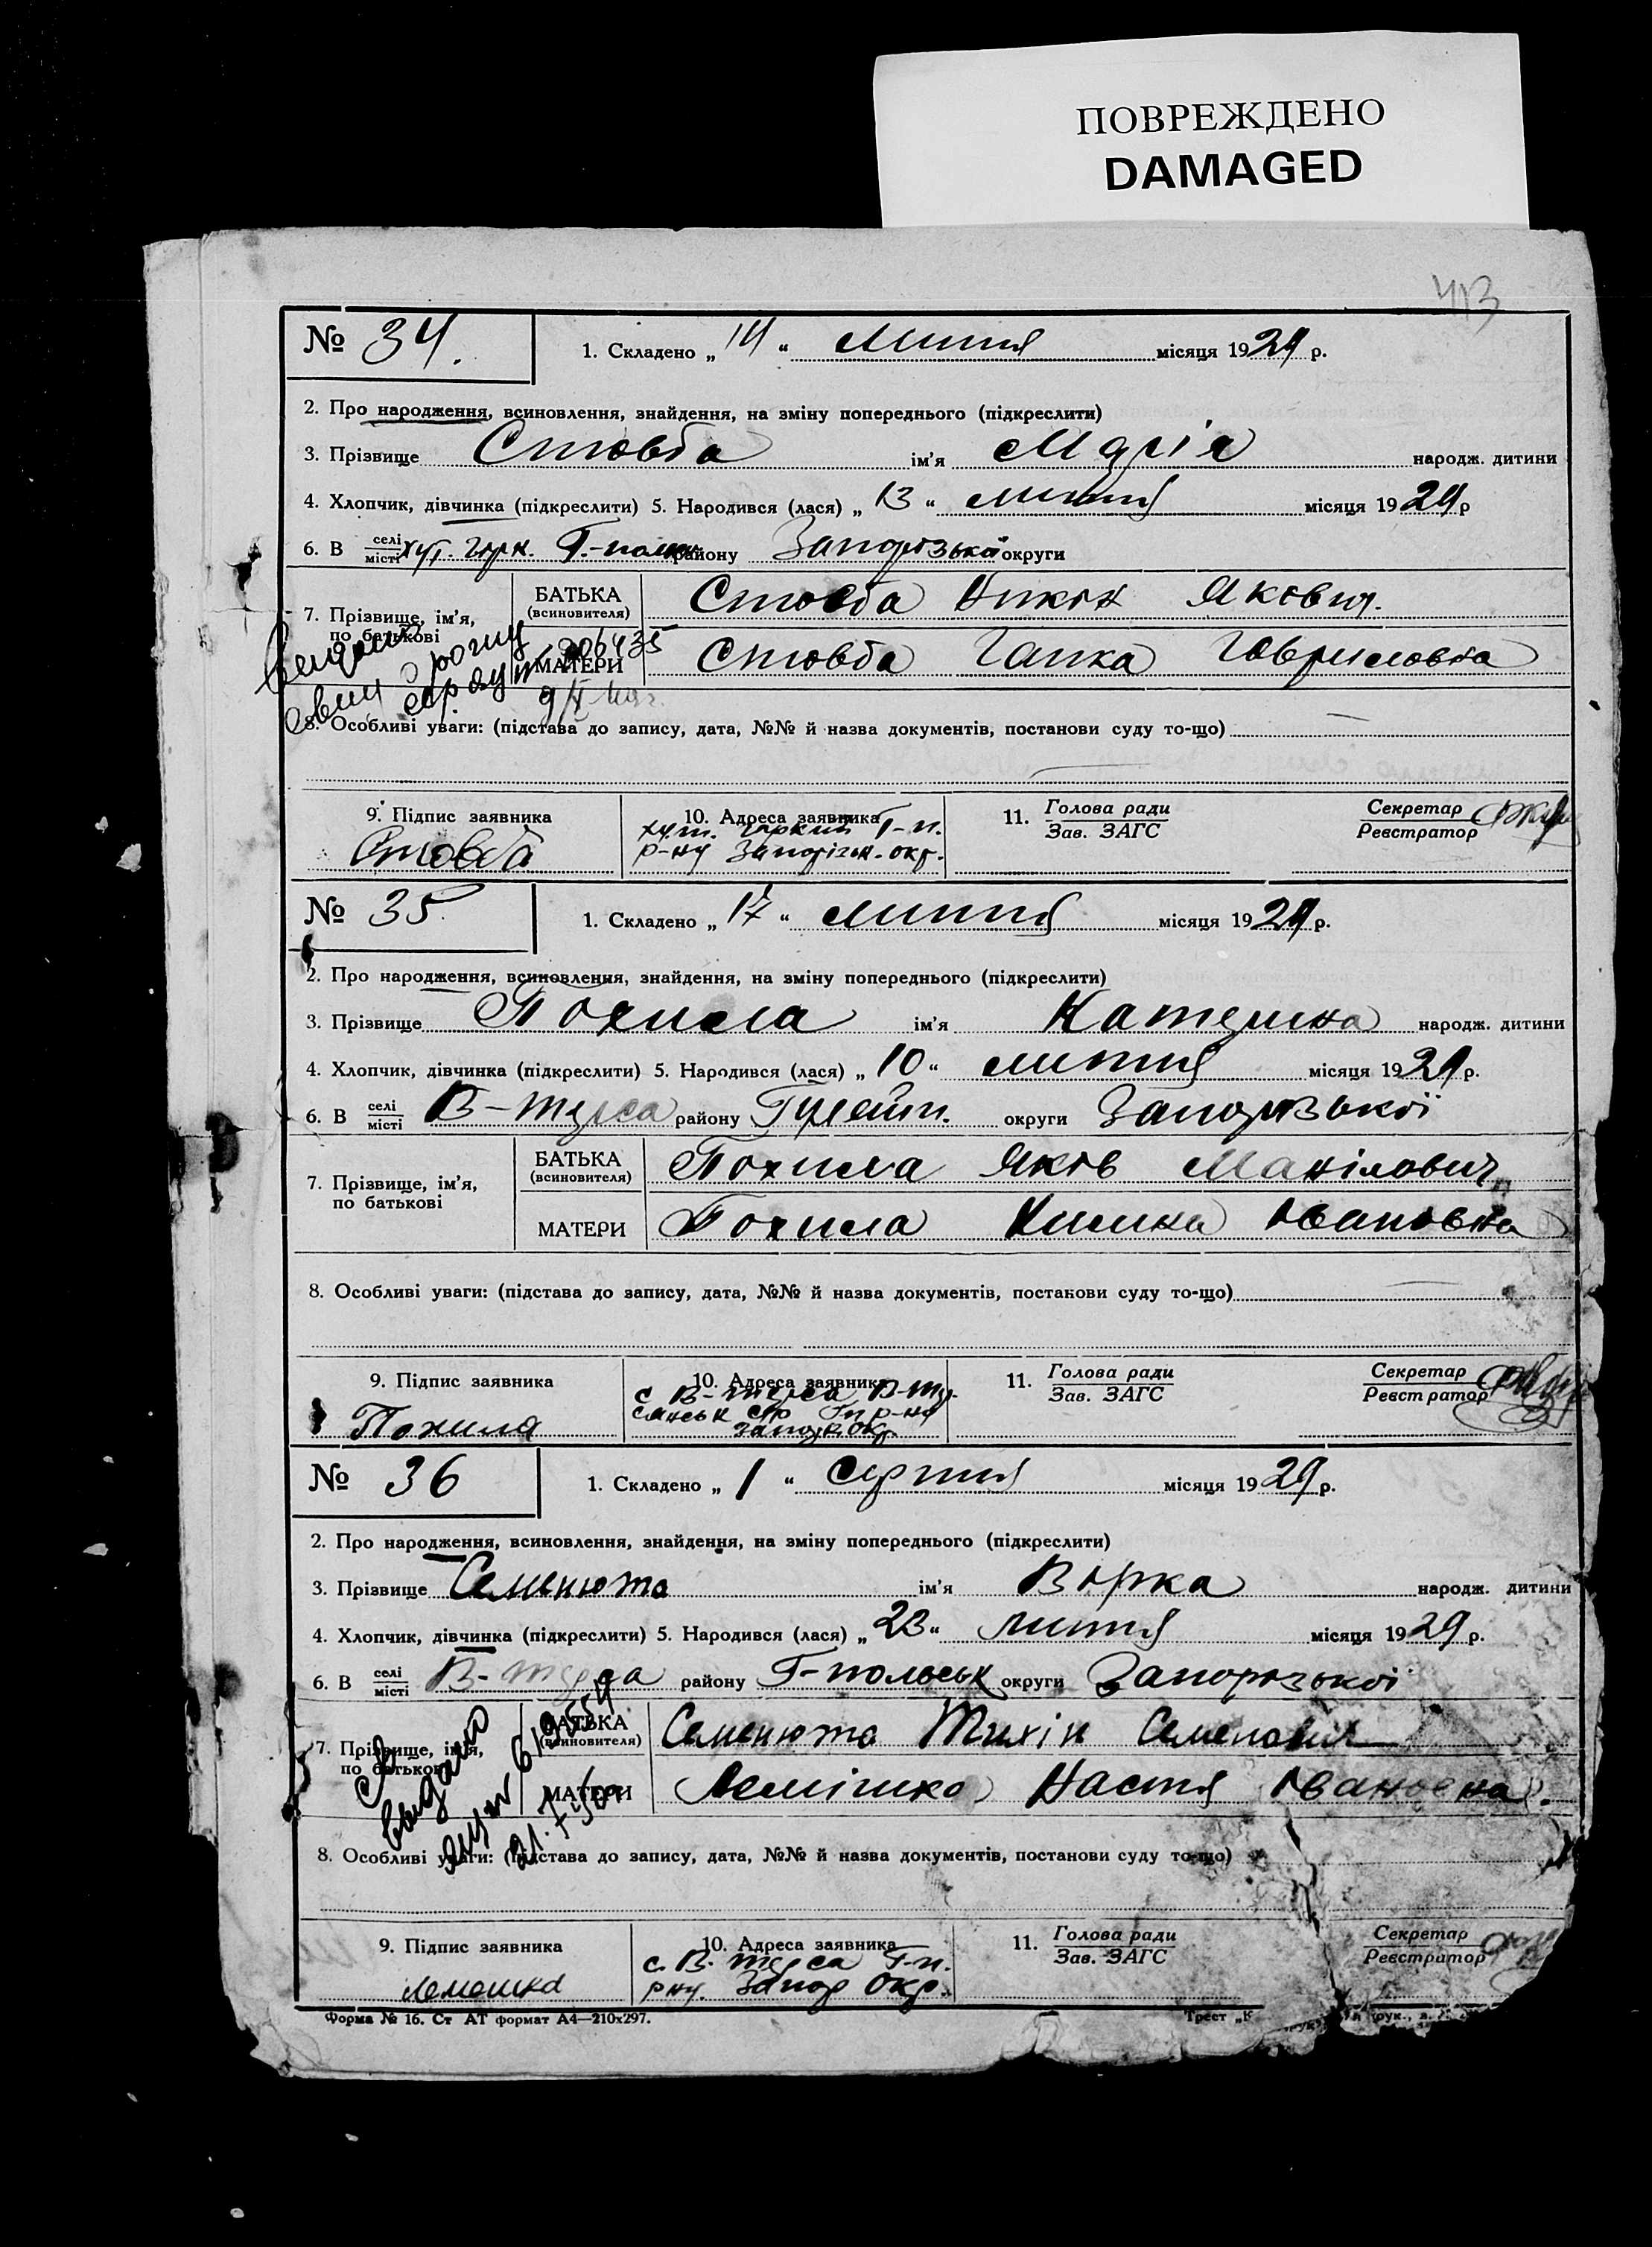 ПОВРЕЖДЕНО
DAMAGED
413
№ 34. 1. Складено „ 14 “ Липня місяця 1929 р.
2. Про народження, всиновлення, знайдення, на зміну попереднього (підкреслити)
3. Прізвище Стовба ім'я Марія народж. дитини
4. Хлопчик, дівчинка (підкреслити) 5. Народився (лася) „ 13 “ липня місяця 1929 р
6. В селі/місті хут. Горк. Г.-поль. району Запорізької округи
7. Прізвище, ім'я, по батькові
БАТЬКА (всиновителя) Стовба Никон Якович.
МАТЕРИ Стовба Гапка Гавриловна
206435
8. Особливі уваги: (підстава до запису, дата, №№ й назва документів, постанови суду то-що)
9. Підпис заявника 10. Адреса заявника 11. Голова ради Секретар
Зав. ЗАГС Реєстратор
Стовба хут. Горкий Г-п.
р-ну Запорізьк. окр.
№ 35. 1. Складено „ 17 “ липня місяця 1929 р.
2. Про народження, всиновлення, знайдення, на зміну попереднього (підкреслити)
3. Прізвище Похила ім'я Катерина народж. дитини
4. Хлопчик, дівчинка (підкреслити) 5. Народився (лася) „ 10 “ липня місяця 1929 р.
6. В селі/місті В-терса району Гуляйп. округи Запорізької
7. Прізвище, ім'я, по батькові
БАТЬКА (всиновителя) Похила Яків Манілович
МАТЕРИ Похила Килина Івановна
8. Особливі уваги: (підстава до запису, дата, №№ й назва документів, постанови суду то-що)
9. Підпис заявника 10. Адреса заявника 11. Голова ради Секретар
Зав. ЗАГС Реєстратор
Похила с В-терса В-тер
сянськ с/р Гп р-ну
Запоріж окр
№ 36 1. Складено „ 1 “ Серпня місяця 1929 р.
2. Про народження, всиновлення, знайдення, на зміну попереднього (підкреслити)
3. Прізвище Семенюта ім'я Вірка народж. дитини
4. Хлопчик, дівчинка (підкреслити) 5. Народився (лася) „ 23 “ липня місяця 1929 р.
6. В селі/місті В-терса району Г-польськ округи Запорозької
7. Прізвище, ім'я, по батькові
БАТЬКА (всиновителя) Семенюта Тихін Семенович
МАТЕРИ Лемішко Настя Івановна.
8. Особливі уваги: (підстава до запису, дата, №№ й назва документів, постанови суду то-що)
9. Підпис заявника 10. Адреса заявника 11. Голова ради Секретар
Зав. ЗАГС Реєстратор
Лемешка с. В. терса Г-п.
рну. Запор окр.
Форма № 16. Ст АТ формат А4—210х297. Трест